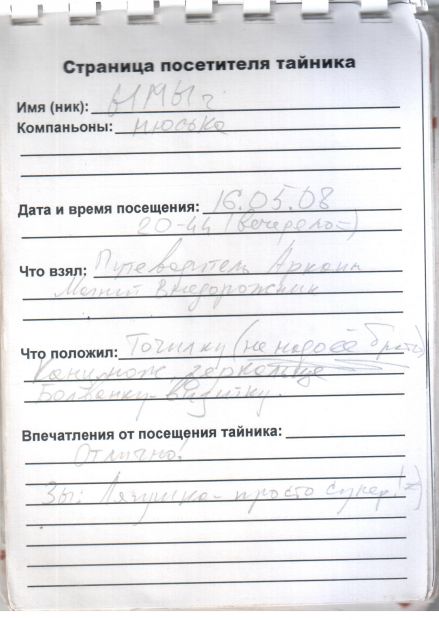 Страница посетителя тайника
Имя (ник): ЫМЫч
Компаньоны: Нюська
Дата и время посещения: 16.05.08
20-44 (вечерело=)
Что взял: Путеводитель Аркаим
Магнит Внедорожник
Что положил: Точилку (не надо её брать)
Канцнож, зеркальце
Болванку-визитку.
Впечатления от посещения тайника:
Отлично!
Зы: Лягушка - просто супер! =)